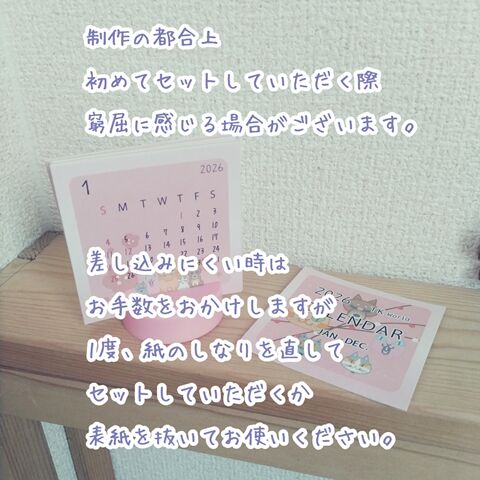 制作の都合上
初めてセットしていただく際
窮屈に感じる場合がございます。
1
2026
S M T W T F S
1 2 3
4 5 6 7 8 9 10
差し込みにくい時は
お手数をおかけしますが
1度、紙のしなりを直して
セットしていただくか
表紙を抜いてお使いください。
2026
LENDAR
JAN. DEC.